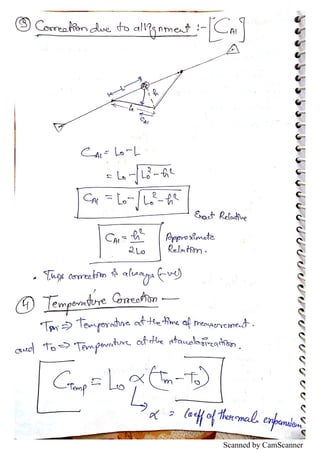 ③ Correction due to allignment :- [CAl]
L
h
Lo
CAl
CAl = Lo-L
= Lo - √Lo²-h²
CAl = Lo - √Lo²-h²
Exact Relative
CAl = h²/2Lo Approximate Relation.
• This correction is always (-ve)
④ Temperature Correction —
Tm ⇒ Temperature at the time of measurement.
and To ⇒ Temperature at the standardization.
CTemp = Lo α (Tm - To)
α = Coeff of thermal expansion
Scanned by CamScanner